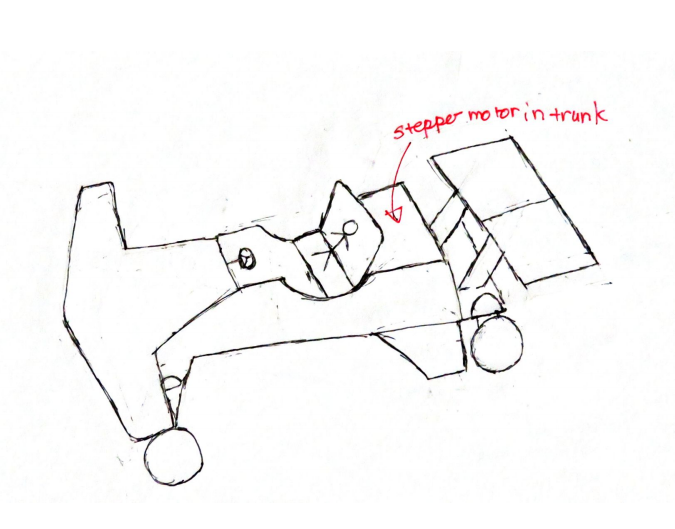 stepper motor in trunk